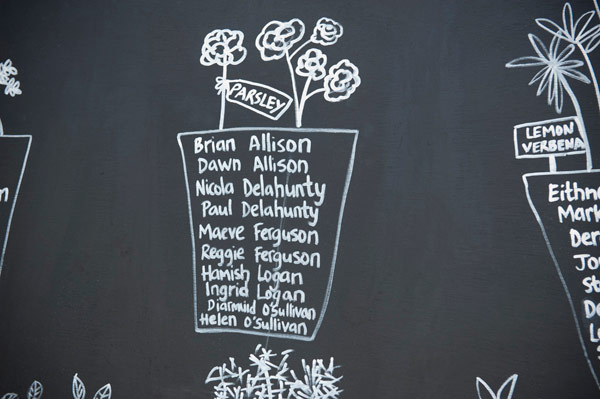 PARSLEY
Brian Allison
Dawn Allison
Nicola Delahunty
Paul Delahunty
Maeve Ferguson
Reggie Ferguson
Hamish Logan
Ingrid Logan
Diarmuid O'Sullivan
Helen O'Sullivan
LEMON
VERBENA
Mark